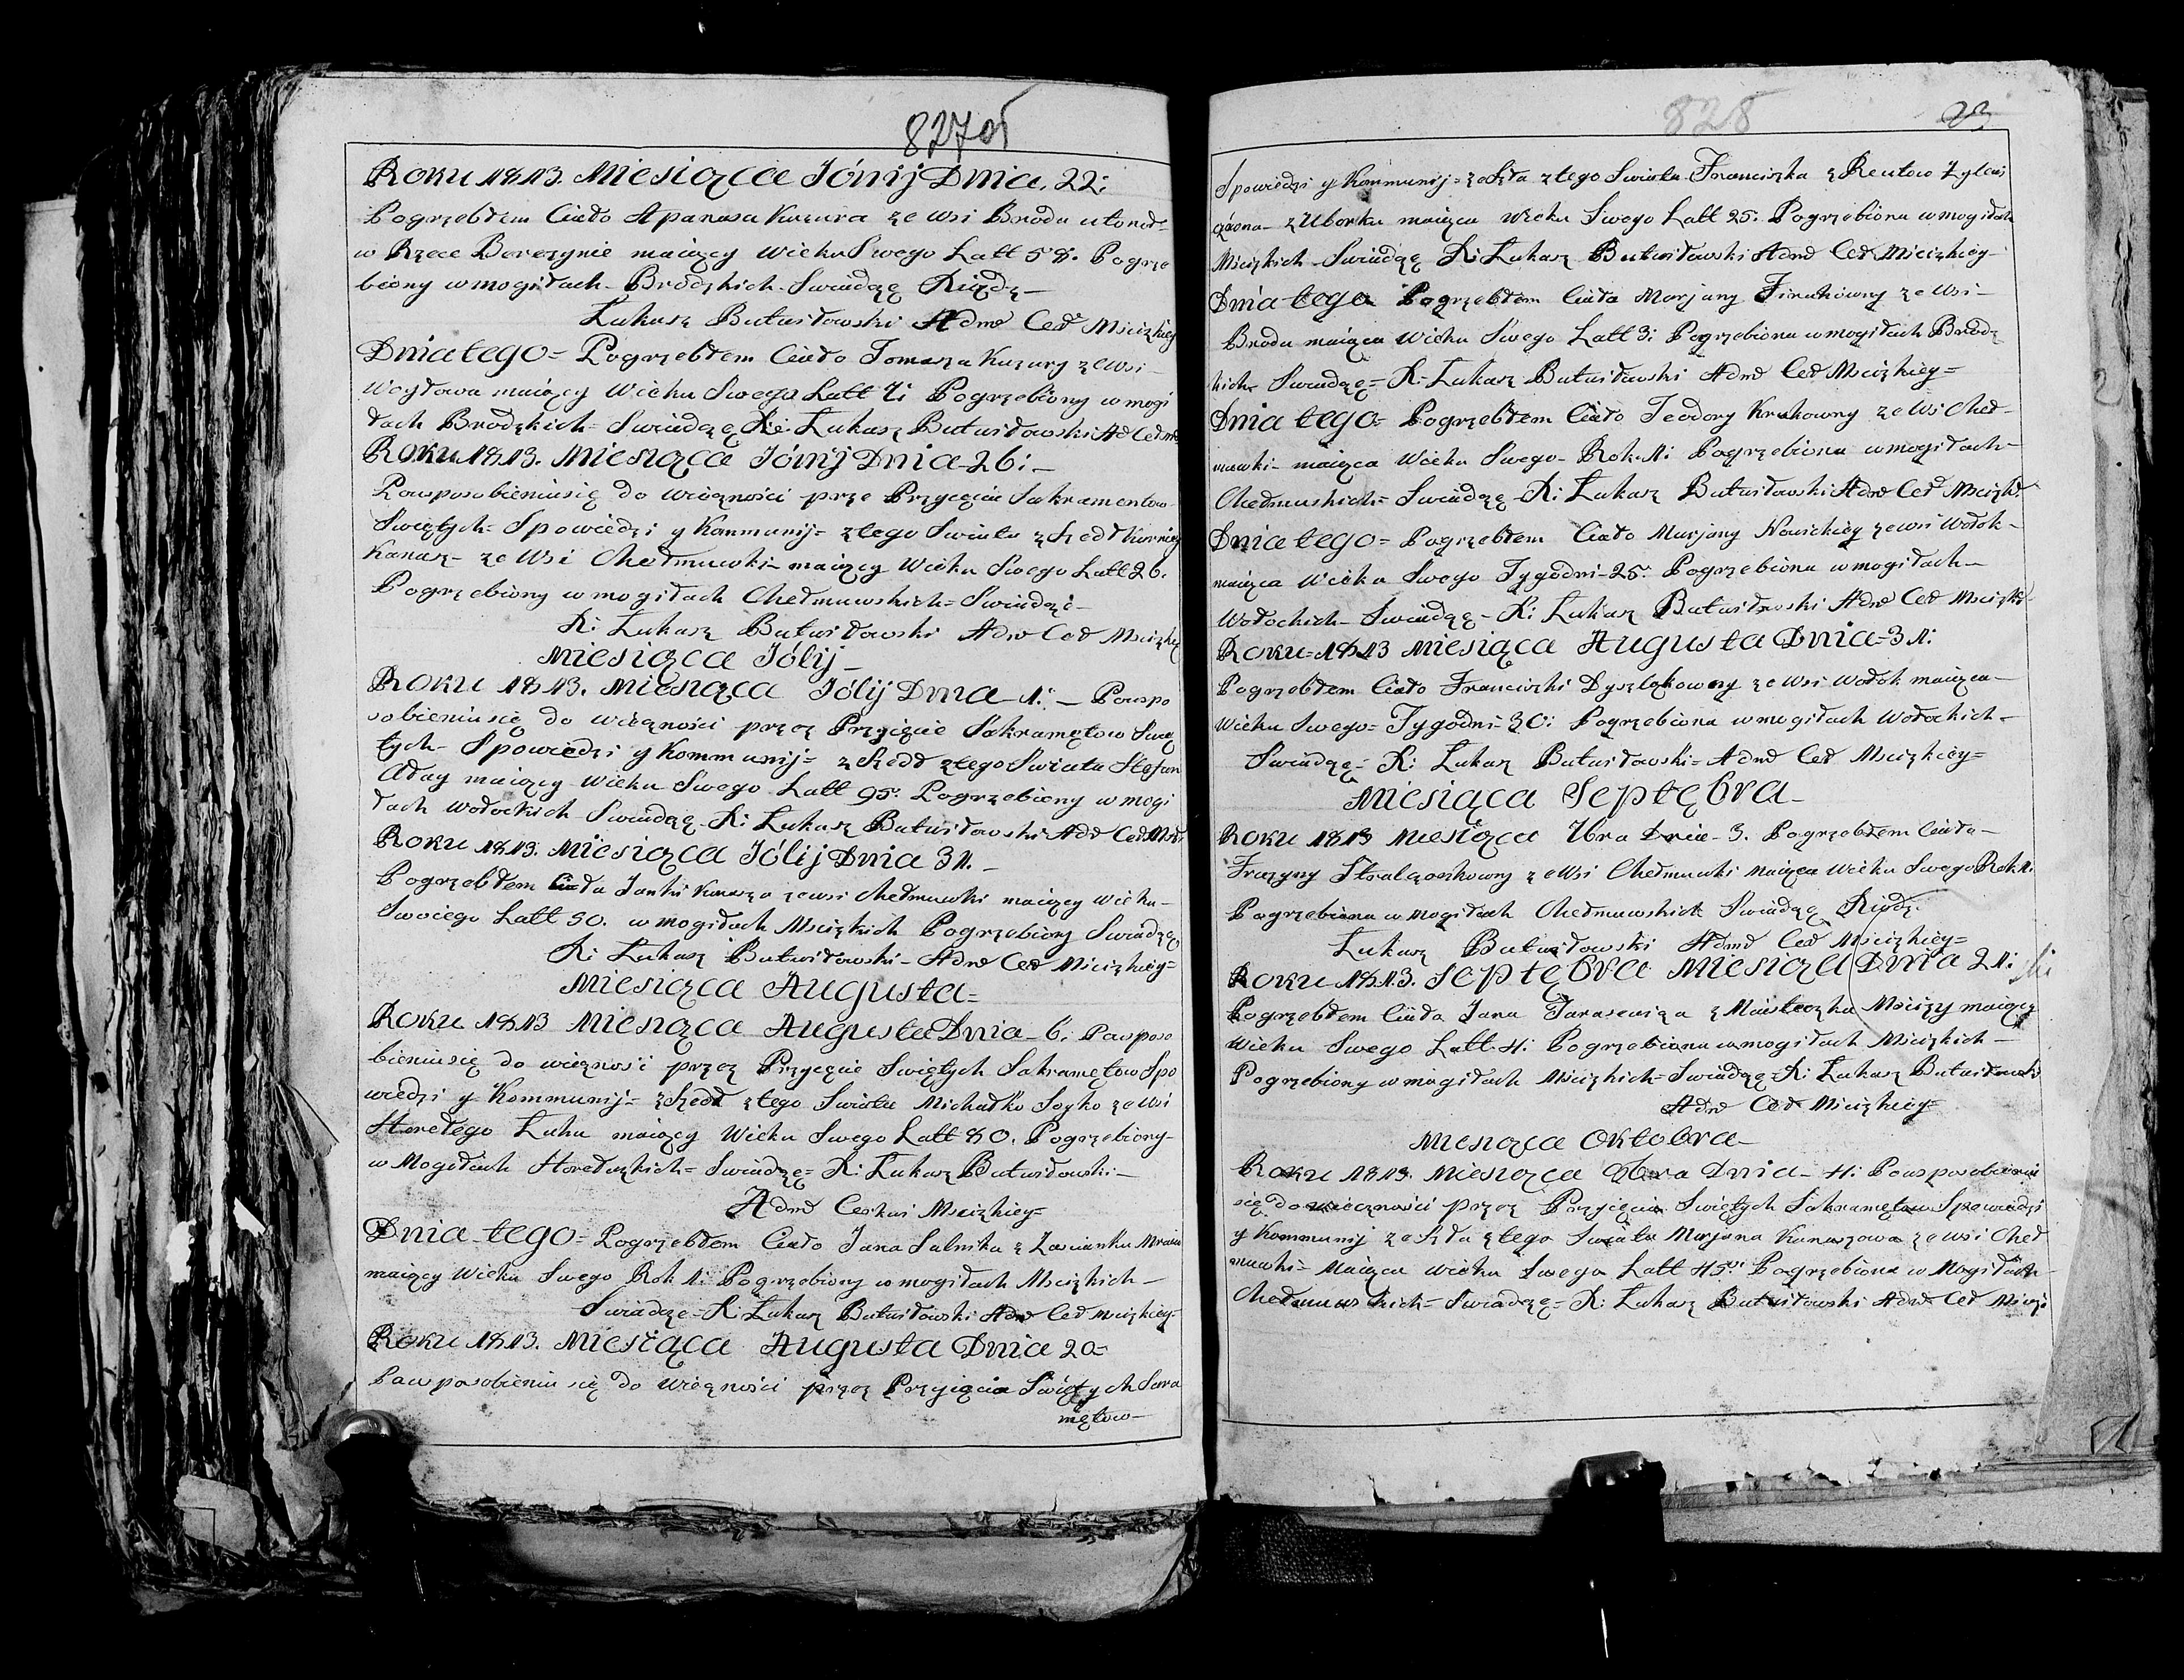 827об
Roku 1813. Miesiąca Jónij Dnia. 22:
Pogrzebłem Ciało Apanasa Kuzura ze Wsi Brodu utonoł=
w Rzece Berezynie maiący Wieku Swego Latt 58. Pogrze
biony w mogiłach Brodzkich Swiadczę Xiądz
Łukasz Butwiłowski Adm Cer Mscizkiey
Dnia tego= Pogrzebłem Ciało Tomasza Kuzury ze Wsi
Woytowa maiący Wieku Swego Latt 7: Pogrzebiony w mogi
łach Brodzkich= Swiadczę X: Łukasz Butwiłowski
Roku 1813. Miesiąca Jónij Dnia 26:
Powsposobieniusię do wiecznosci prze Przyięcie Sakramentow
Swiętych= Spowiedzi y Kommunij= z tego Swiata zszedł
Kanasz= ze Wsi Chełmuwki maiący Wieku Swego Latt 26.
Pogrzebiony w mogiłach Chełmuwskich= Swiadczę
X: Łukasz Butwiłowski Adm Cer Mscizkiey
Miesiąca Jólij
Roku 1813. Miesiąca Jólij Dnia 1: Powspo
sobieniusię do wiecznosci przez Przyięcie Sakramętow Swię
tych= Spowiedzi y Kommunij= zszedł z tego Swiata Stefan
Aday maiący Wieku Swego Latt 95. Pogrzebiony w mogi
łach Wołockich Swiadczę X: Łukasz Butwiłowski
Roku 1813. Miesiąca Jólij Dnia 31.
Pogrzebłem Ciała Janki Kanasza ze wsi Chełmuwki maiący Wieku
Swoiego Latt 50. w mogiłach Mscizkich Pogrzebiony Swiadczę
X: Łukasz Butwiłowski Adm Cer Mscizkiey=
Miesiąca Augusta=
Roku 1813 Miesiąca Augusta Dnia 6. Powsposo
bieniusię do wiecznosc przez Przyięcie Swiętych Sakramętow Spo
wiedzi y Kommunij= zszedł z tego Swiata Michałko Soyko ze Wsi
Horełego Łuhu maiący Wieku Swego Latt 80. Pogrzebiony
w Mogiłach Horełuzkich= Swiadczę= X: Łukasz Butwiłowski
Adm Cerkwi Mscizkiey=
Dnia tego= Pogrzebłem Ciało Jana Salnika z Zascianku
maiący Wieku Swego Rok 1: Pogrzebiony w mogiłach Mscizkich
Swiadczę= X: Łukasz Butwiłowski Adm Cer Mscizkiey=
Roku 1813. Miesiąca Augusta Dnia 20=
Powsposobieniu się do Wiecznosci przez Przyięcia Swiętych Sara
mętow
828
23
Spowiedzi y Kommunij= zeszła z tego Swiata Franciszka z
z Uborku maiąca Wieku Swego Latt 25. Pogrzebiona w mogiłach
Mscizkich Swiadczę X: Łukasz Butwiłowski Adm Cer Mscizkiey
Dnia tego Pogrzebłem Ciała Marjany ze Wsi
Brodu maiąca Wieku Swego Latt 3: Pogrzebiona w mogiłach Brodz
kich Swiadczę= X: Łukasz Butwiłowski Adm Cer Mscizkiey=
Dnia tego= Pogrzebłem Ciało Teodory Krukowny ze Wsi Cheł
muwki maiąca Wieku Swego Rok 1: Pogrzebiona w mogiłach
Chełmuskich= Swiadczę X: Łukasz Butwiłowski Adm Cer Mscizk
Dnia tego= Pogrzebłem Ciało Marjany Nowickiey ze wsi Wołok
maiąca Wieku Swego Tygodni 25. Pogrzebiona w mogiłach
Wołochich Swiadczę X: Łukasz Butwiłowski Adm Cer Mscizki
Roku 1813 Miesiąca Augusta Dnia 31:
Pogrzebłem Ciało Franciszki ze Wsi Wołok maiąca
Wieku Swego= Tygodni 30: Pogrzebiona w mogiłach Wołochich
Swiadczę= X: Łukasz Butwiłowski= Adm Cer Mscizkiey=
Miesiąca Septębra
Roku 1813 Miesiąca 7bra Dnia 3. Pogrzebłem Ciała
ze Wsi Chełmuwki Maiąca Wieku Swego Rok 1:
Pogrzebiona w Mogiłach Chełmuwskich Swiadczę Xiądz
Łukasz Butwiłowski Adm Cer Mscizkiey=
Roku 1813. Septębra Miesiąca Dnia 21:
Pogrzebłem Ciała Jana Tarasewicza z Miasteczka Mscizy maiący
Wieku Swego Latt 4: Pogrzebiona w mogiłach Mscizkich
Pogrzebiony w mogiłach Mscizkich= Swiadczę= X: Łukasz Butwiłowski
Adm Cer Mscizkiey=
Miesiąca Oktobra
Roku 1813. Miesiąca 8bra Dnia 4: Powsposobieniu
się do wiecznosci przez Przyięcia Swiętych Sakramętow Spowiedzi
y Kommunij zeszła z tego Swiata Marjana Kanaszowa ze Wsi Cheł
muwki= Maiąca Wieku Swego Latt 45. Pogrzebiona w Mogiłach
Chełmuwskich= Swiadczę= X: Łukasz Butwiłowski Adm Cer